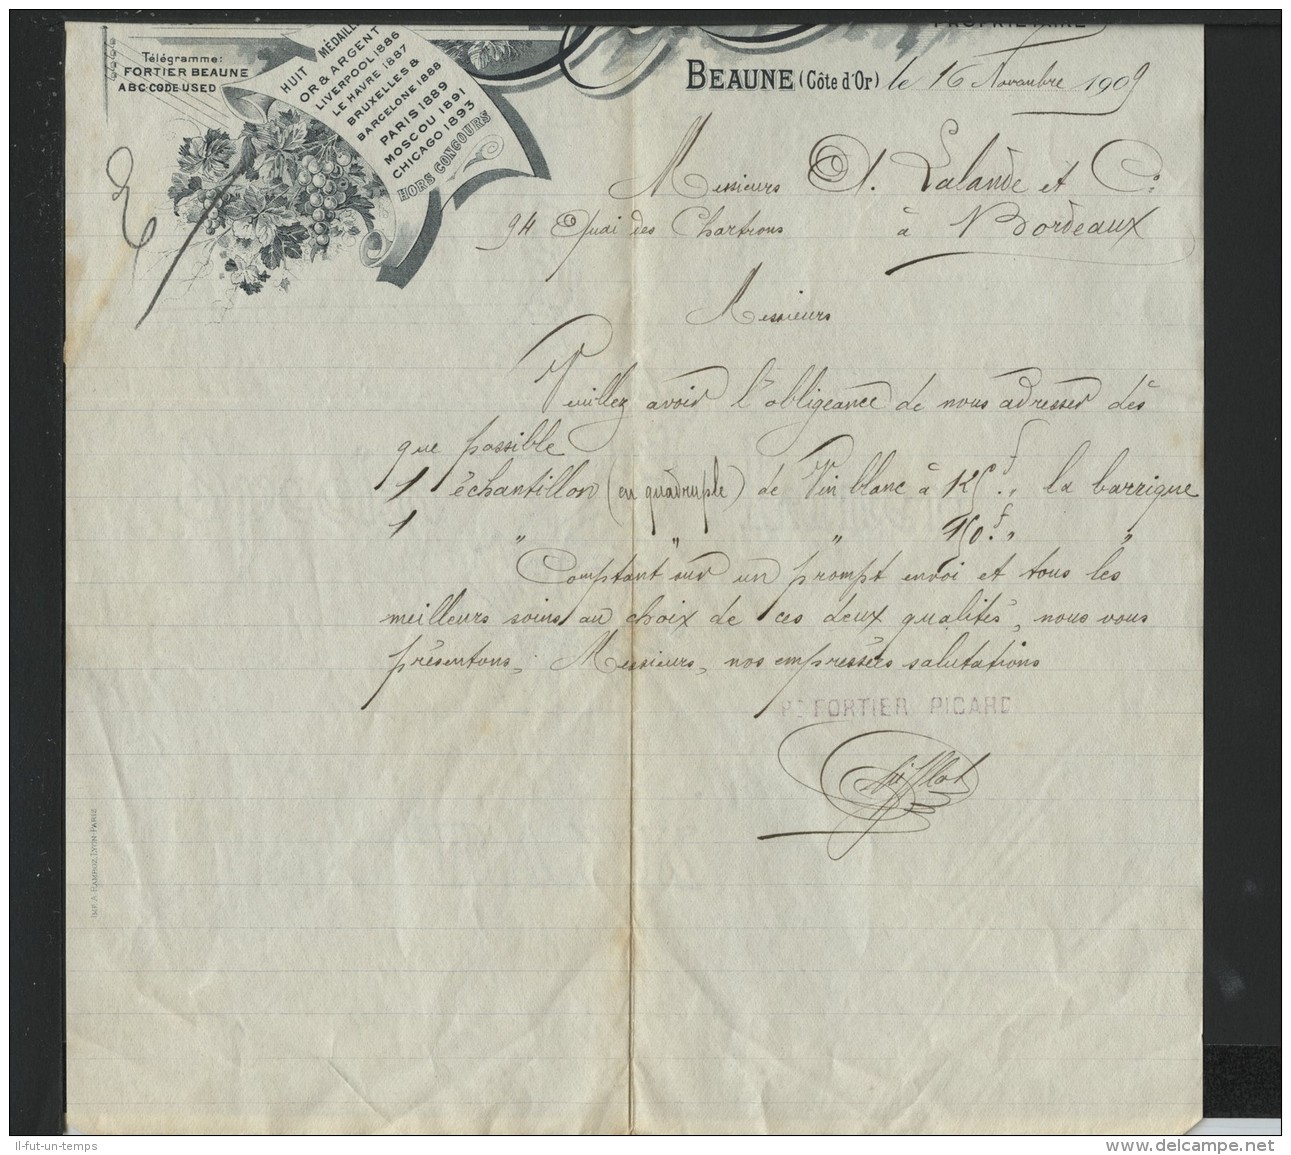 PROPRIÉTAIRE
Télégramme:
FORTIER BEAUNE
ABC-CODE USED
HUIT MÉDAILLES
OR & ARGENT
LIVERPOOL 1886
LE HAVRE 1887
BRUXELLES &
BARCELONE 1888
PARIS 1889
MOSCOU 1891
CHICAGO 1893
HORS CONCOURS
BEAUNE (Côte d'Or) le 16 Novembre 1909
Messieurs A. Lalande et Cie
94 Quai des Chartrons à Bordeaux
Messieurs
Veuillez avoir l'obligeance de nous adresser dès
que possible
1 échantillon (en quadruple) de Vin blanc à 125 f. „ la barrique
1 „ „ „ 150 f. „ „
Comptant sur un prompt envoi et tous les
meilleurs soins au choix de ces deux qualités, nous vous
présentons, Messieurs, nos empressées salutations
Pr FORTIER PICARD
IMP. A. RAMBOZ, LYON-PARIS
Il-fut-un-temps
www.delcampe.net